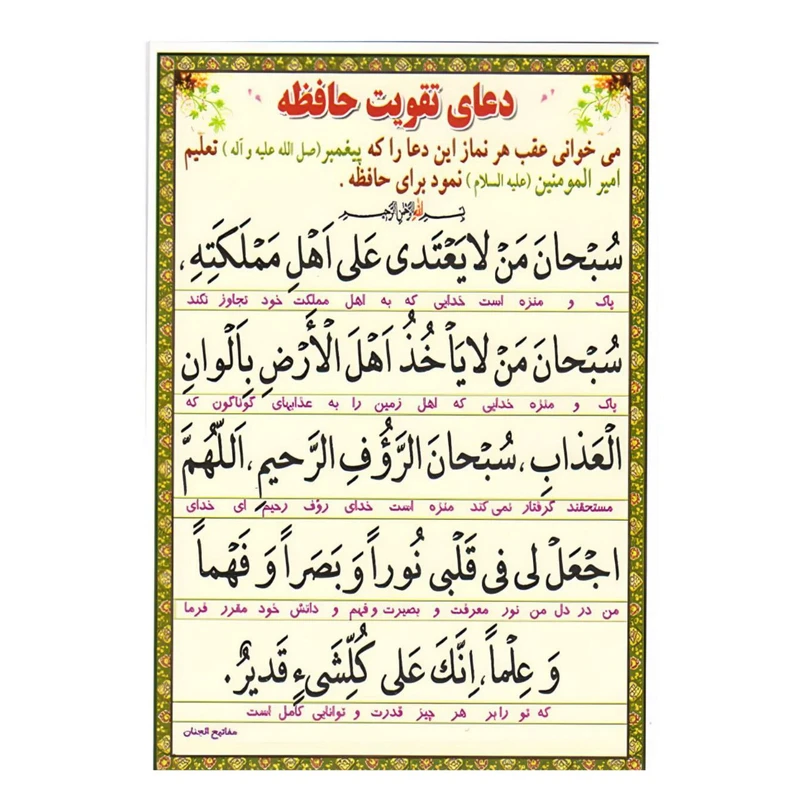 دعای تقویت حافظه
می خوانی عقب هر نماز این دعا را که پیغمبر (صل الله علیه و آله) تعلیم
امیر المومنین (علیه السلام) نمود برای حافظه .
بِسْمِ اللهِ الرَّحْمنِ الرَّحیمِ
سُبْحانَ مَنْ لا یَعْتَدی عَلی اَهْلِ مَمْلَکَتِهِ،
پاک و منزه است خدایی که به اهل مملکت خود تجاوز نکند
سُبْحانَ مَنْ لا یَأْخُذُ اَهْلَ الْأَرْضِ بِاَلْوانِ
پاک و منزه خدایی که اهل زمین را به عذابهای گوناگون که
الْعَذابِ، سُبْحانَ الرَّؤُفِ الرَّحیمِ، اَللّهُمَّ
مستحقند گرفتار نمی کند منزه است خدای رؤف رحیم ای خدای
اجْعَلْ لی فی قَلْبی نُوراً وَ بَصَراً وَ فَهْماً
من در دل من نور معرفت و بصیرت و فهم و دانش خود مقرر فرما
وَ عِلْماً، اِنَّکَ عَلی کُلِّشَیءٍ قَدیرٌ.
که تو را بر هر چیز قدرت و توانایی کامل است
مفاتیح الجنان